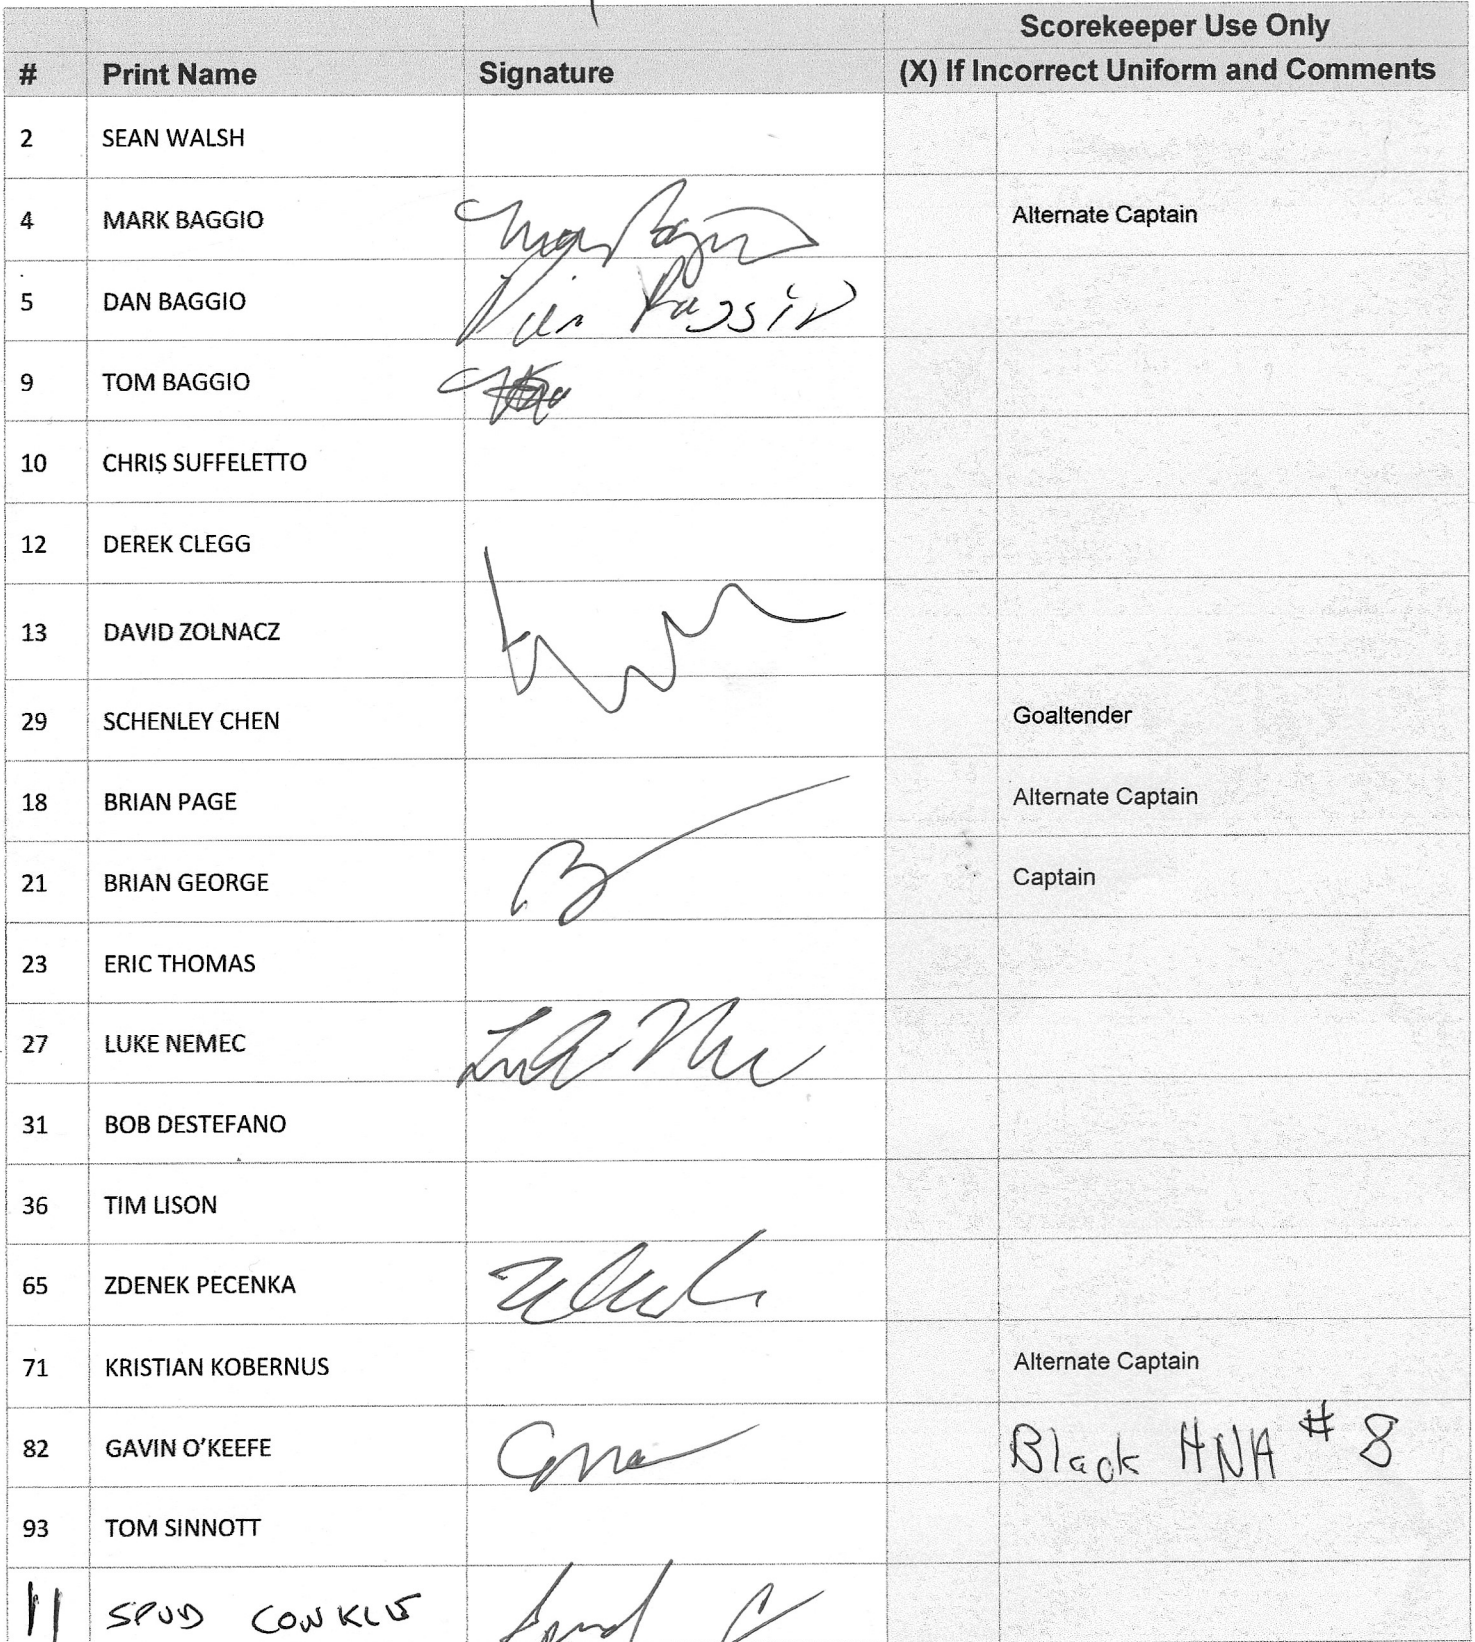 Scorekeeper Use Only
# Print Name Signature (X) If Incorrect Uniform and Comments
2 SEAN WALSH
4 MARK BAGGIO Alternate Captain
5 DAN BAGGIO
9 TOM BAGGIO
10 CHRIS SUFFELETTO
12 DEREK CLEGG
13 DAVID ZOLNACZ
29 SCHENLEY CHEN Goaltender
18 BRIAN PAGE Alternate Captain
21 BRIAN GEORGE Captain
23 ERIC THOMAS
27 LUKE NEMEC
31 BOB DESTEFANO
36 TIM LISON
65 ZDENEK PECENKA
71 KRISTIAN KOBERNUS Alternate Captain
82 GAVIN O'KEEFE Black HNA # 8
93 TOM SINNOTT
11 SPUD